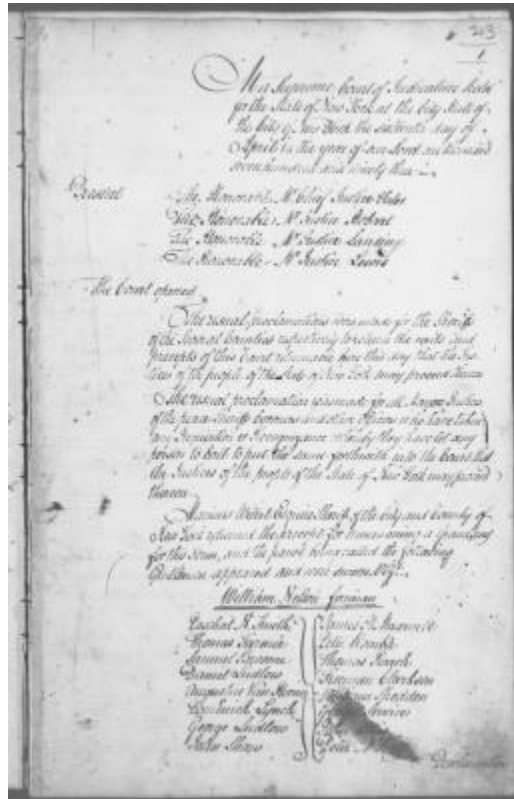 213
1
At a Supreme Court of Judicature held
for the State of New York at the City Hall of
the City of New York the sixteenth day of
April in the year of our Lord one thousand
seven hundred and ninety three
Present
The Honorable Mr Chief Justice Yates
The Honorable Mr Justice Hobart
The Honorable Mr Justice Lansing
The Honorable Mr Justice Lewis
The Court opened
The usual proclamation was made for the Sheriffs
of the several Counties to return the writs and
precepts of this Court returnable here this day that the Jus
tices of the people of the State of New York may proceed thereon
The usual proclamation was made for all Mayors Justices
of the peace Sheriffs Coroners and other officers who have taken
any Inquisition or Recognizance whereby they have let any
person to bail to put the same forthwith into the Court that
the Justices of the people of the State of New York may proceed
thereon
Esquire Sheriff of the City and County of
New York returned the precept for summoning a Grand Jury
for this term, and the panel being called the following
Gentlemen appeared and were sworn Viz.
William Neilson foreman
Paschal N. Smith
Thomas
Samuel Broome
Daniel Ludlow
Augustus Van Horne
Dominick Lynch
George Ludlow
John Shaw
James H. Maxwell
Thomas
Freeman Clarkson
Shedden
Peter
Proclamation